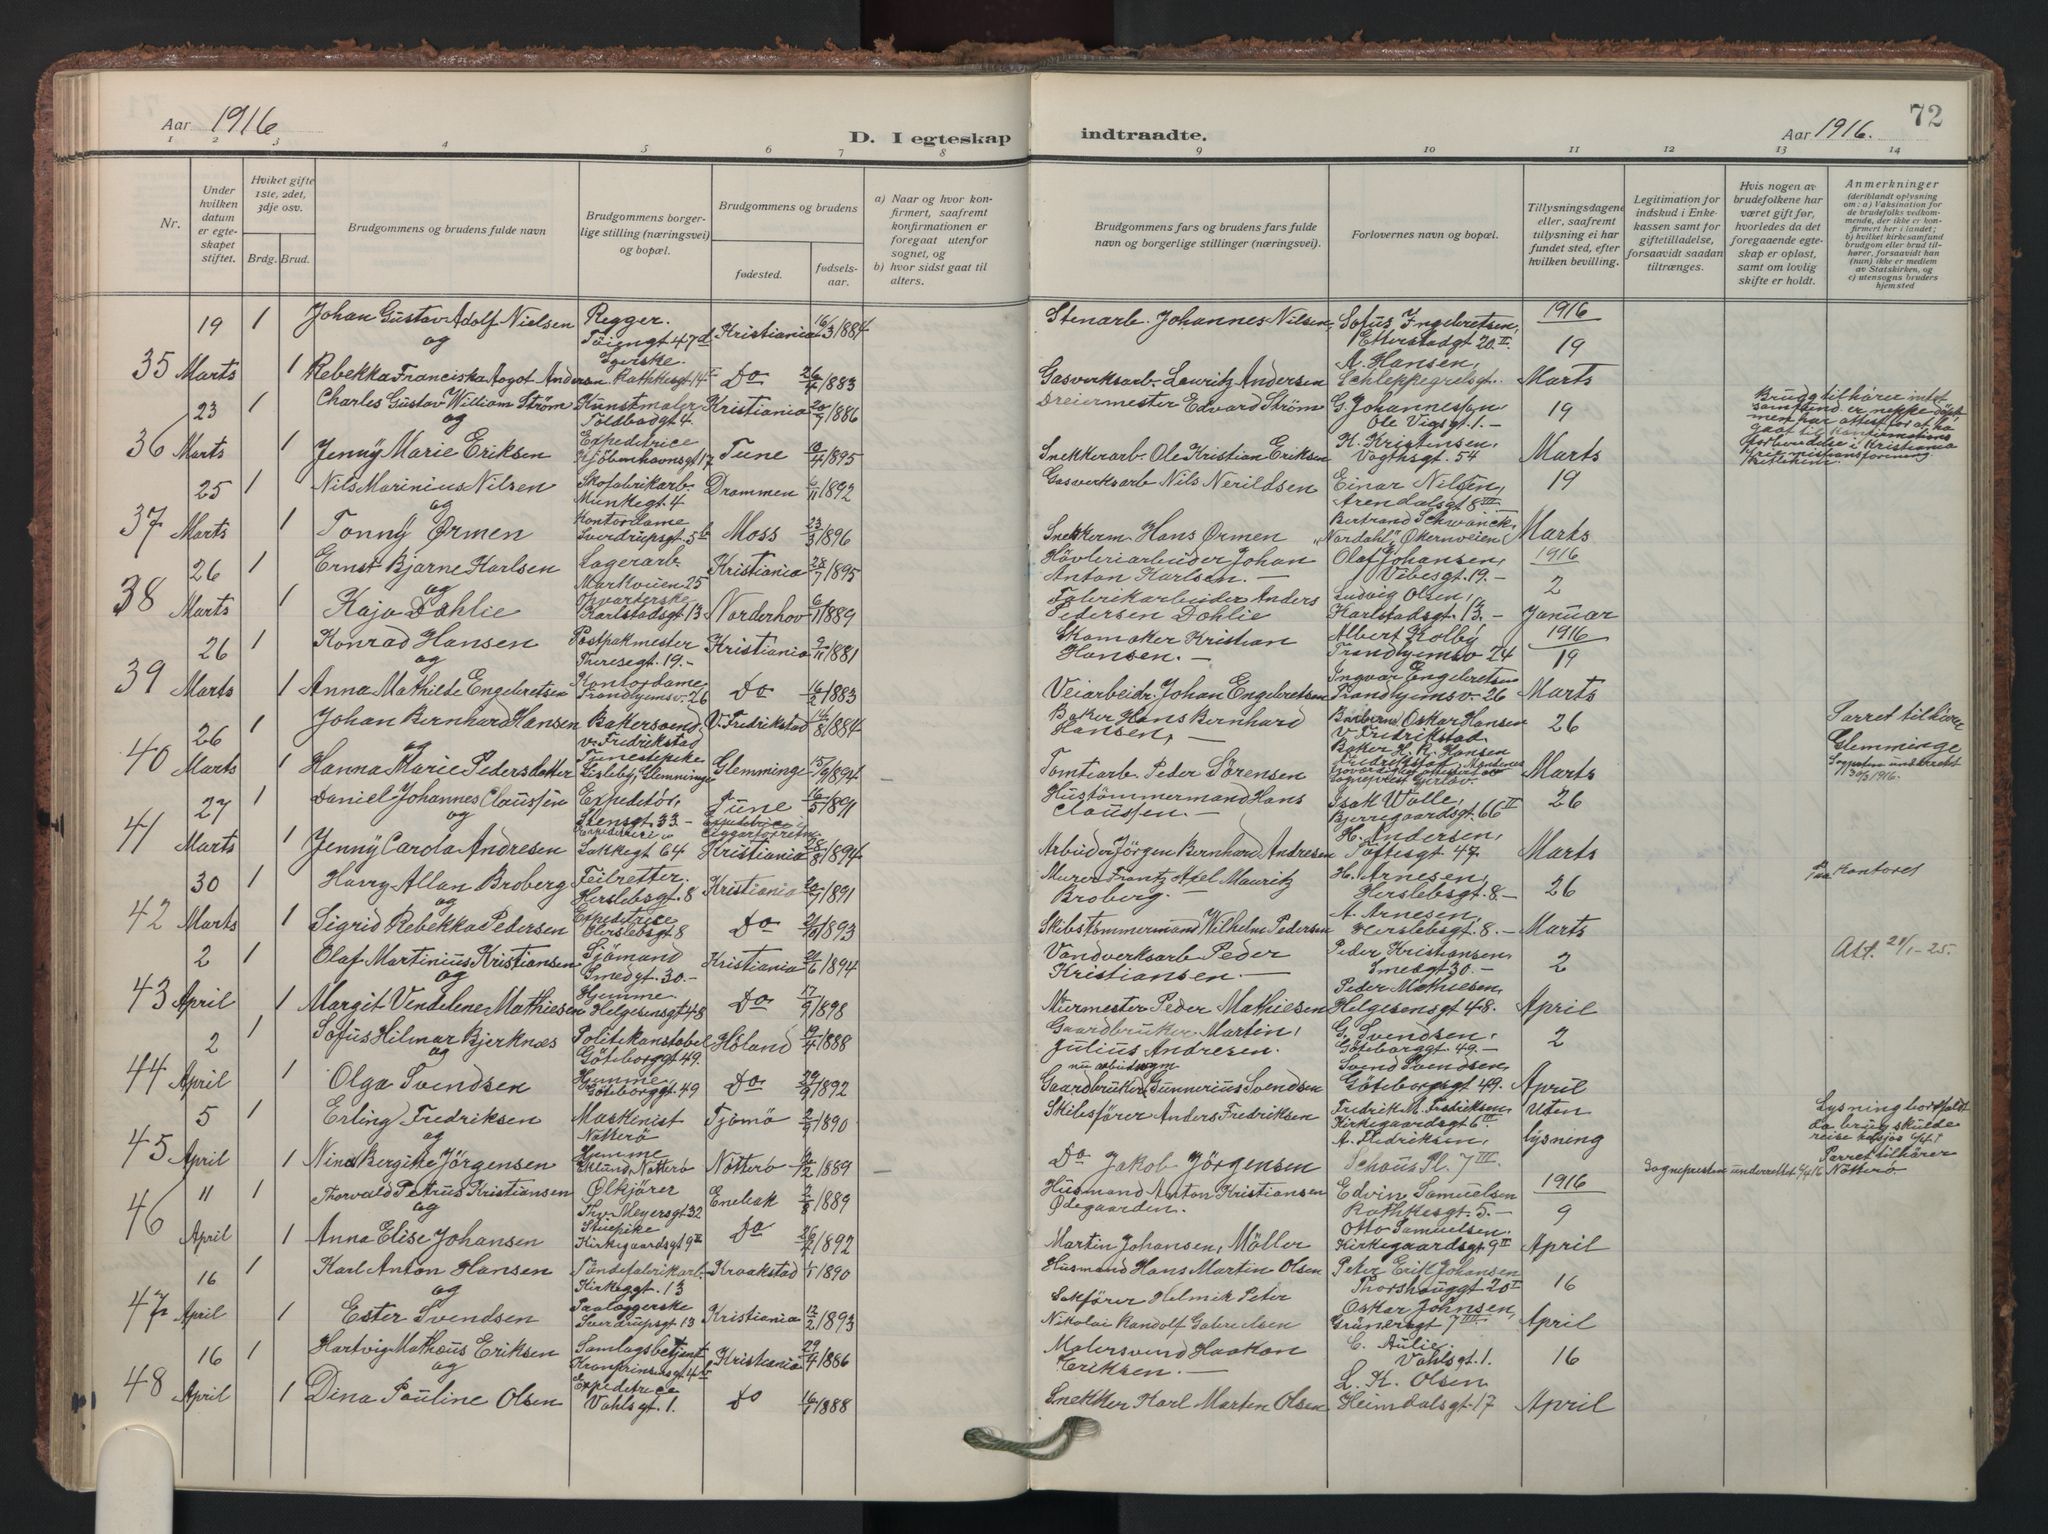 Aar 1916
D. I egteskap indtraadte.
Aar 1916.
72
1 2 3 4 5 6 7 8 9 10 11 12 13 14
Nr.
Under hvilken datum er egteskapet stiftet.
Hviket gifte 1ste, 2det, 3dje osv.
Brdg. Brud.
Brudgommens og brudens fulde navn
Brudgommens borgerlige stilling (næringsvei) og bopæl.
Brudgommens og brudens
fødested.
fødselsaar.
a) Naar og hvor konfirmert, saafremt konfirmationen er foregaat utenfor sognet, og
b) hvor sidst gaat til alters.
Brudgommens fars og brudens fars fulde navn og borgerlige stillinger (næringsvei).
Forlovernes navn og bopæl.
Tillysningsdagene eller, saafremt tillysning ei har fundet sted, efter hvilken bevilling.
Legitimation for indskud i Enkekassen samt for giftetilladelse, forsaavidt saadan tiltrænges.
Hvis nogen av brudefolkene har været gift før, hvorledes da det foregaaende egteskap er opløst, samt om lovlig skifte er holdt.
Anmerkninger (deriblandt oplysning om: a) Vaksination for de brudefolks vedkommende, der ikke er konfirmert her i landet; b) hvilket kirkesamfund brudgom eller brud tilhører, forsaavidt han (hun) ikke er medlem av Statskirken, og c) utensogns bruders hjemsted
19 1 Johan Gustav Adolf Nielsen Regger. Kristiania 16/3 1884 Stenarb. Johannes Nilsen, Sofus Ingebretsen, 1916
og Töiengt 47d Etterstadgt 20 II 19
35 Marts 1 Rebekka Franciska Aagot Andersen Rathkesgt 14 Do 26/4 1883 Gasverksarb. Lauritz Andersen A. Hansen, Schleppegrelsgt. Marts
23 1 Charles Gustav William Ström Kunstmaler Kristiania 20/9 1886 Dreiermester Edvard Ström G. Johannessen, 19
og Toldbodgt 4. Ole Vigsgt 1. –
36 Marts 1 Jenny Marie Eriksen Expeditrice Kjöbenhavnsgt 17 Tune 1895 Snekkerarb. Ole Kristian Eriksen K. Kristensen, Vogtsgt. 54 Marts
25 1 Nils Marinius Nilsen Skofabrikarb. Drammen 6/11 1892 Gasverksarb Nils Nerildsen Einar Nilsen, 19
og Munkegt 4 Arendalsgt 8 III
37 Marts 1 Tonny Ørmen Kontordame Sverdrupsgt. 5b Moss 23/3 1896 Snekkerm Hans Ørmen Bertrand Schwänck, "Nordahl", Økernveien Marts
26 1 Ernst Bjarne Karlsen Lagerarb. Kristiania 28/7 1895 Hövleriarbeider Johan Olaf Johansen, 1916
og Markveien 25 Anton Karlsen. – Vibesgt. 19. – 2
38 Marts 1 Kaja Dahlie Karlstadsgt. 13 Norderhov 1889 Fabrikarbeider Anders Pedersen Dahlie Ludvig Olsen, Karlstadsgt. 13. – Januar
26 1 Konrad Hansen Postpakmester Kristiania 2/11 1881 Skomaker Kristian Albert Kolby 1916
og Theresegt. 19. – Hansen. – Trondhjemsv 24 19
39 Marts 1 Anna Mathilde Engebretsen Kontordame Trondhjemsv. 26 Do 16/2 1883 Veiarbeidr. Johan Engebretsen Ingvar Engebretsen Trondhjemsv. 26 Marts
26 1 Johan Bernhard Hansen Bakersvend, V. Fredrikstad 14/8 1884 Baker Hans Bernhard Oskar Hansen 26
og v. Fredrikstad Hansen, – V Fredrikstad.
40 Marts 1 Hanna Marie Pedersdatter Tjenestepike Lisleby, Glemminge Glemminge 15/9 1894 – Tomtearb. Peder Sörensen Baker H. R. Hansen Marts
Parret tilhörer Glemminge Sogneprn underrettet 30/3 1916.
27 1 Daniel Johannes Claussen Expeditör, Tune 16/5 1891 Hustömmermand Hans Isak Walle, 26
og Stensgt. 33. – Claussen. – Bjerregaardsgt. 66 II
41 Marts 1 Jenny Carola Andresen Sakkegt 64 Kristiania 28/8 1894 Arbeider Jörgen Bernhard Andresen H. Andersen, Toftesgt 47. Marts
30 1 Harry Allan Broberg Feilretter. Kristiania 20/7 1891 Murer Frantz Axel Mauritz H. Arnesen, 26
og Herslebsgt. 8 Broberg. – Herslebsgt. 8. –
Paa Kontoret
42 Marts 1 Sigrid Rebekka Pedersen Herslebsgt 8 Do 21/10 1893 Skibstömmermand Wilhelm Pedersen A. Arnesen, Herslebsgt. 8. – Marts
2 1 Olaf Martinius Kristiansen Sjömand Kristiania 21/6 1894 Vandverksarb. Peder Peder Kristiansen 2
og Smedgt. 30. – Kristiansen. – Smedgt 30. –
Att. 21/1 – 25.
43 April 1 Margit Vendelene Mathiesen Hjemme. Helgesensgt 48 Do 17/9 1898 Murmester Peder Mathiesen Peder Mathiesen, Helgesensgt 48. April
2 1 Sofus Hilmar Bjerknæs Politikonstabel Höland 19/4 1888 Gaardbruker Martin, G. Svendsen, 2
og Göteborggt 49. Julius Andresen. Göteborggt. 49. –
44 April 1 Olga Svendsen Hjemme Göteborggt 49 Do 29/9 1892 nu arbeidsgm Gaardbruker Gunnerius Svendsen Svend Svendsen, Göteborgsgt 49. April
5 1 Erling Fredriksen Maskinist Tjömö 2/9 1890 Skibsförer Anders Fredriksen Fredrik M. Fredriksen, Uten
og Nötterö Kirkegaardsgt 6 III
45 April 1 Nina Bergitte Jörgensen Hjemme Eklund, Nötterö Nötterö 1889 – Do Jakob Jörgensen A. Fredriksen, Schous Pl. 7 III lysning
Lysning bortfaldt da brug. skulde reise tilsjøs
Parret tilhører Nötterö
Sognepresten underrettet
11 1 Thorvald Petrus Kristiansen Ölkjörer Enebak 2/8 1889 Husmand Anton Kristiansen Edvin Samuelsen 1916
og Thv. Meyersgt 32 Ødegaarden. Rathkesgt. 5. – 9
46 April 1 Anna Elise Johansen Stuepike Kirkegaardsgt 9 II Do 26/4 1892 Martin Johansen, Möller Otto Samuelsen. Kirkegaardsgt. 9 II April
16 1 Karl Anton Hansen Töndefabrikarb. Kraakstad 1/1 1890 Husmand Hans Martin Olsen Peter Erik Johansen 16
og Kirkeggt. 13 Thorshauggt 20 I
47 April 1 Ester Svendsen Paalæggerske Sverdrupsgt 13 Kristiania 12/2 1893 Sakförer Helmik Peter Nikolai Randolf Gabrielsen Oskar Johnsen, Grünersgt 7 III April
16 1 Hartvig Mathæus Eriksen Samlagsbetjent Kristiania 29/4 1886 Malersvend Haakon C. Aulie. 16
og Kronprinsesgt 4 Eriksen. – Vahlsgt. 1.
48 April 1 Dina Pauline Olsen Expeditrice Vahlsgt. 1. Do 16/1 1888 Snekker Karl Martin Olsen L. K. Olsen Heimdalsgt. 17 April